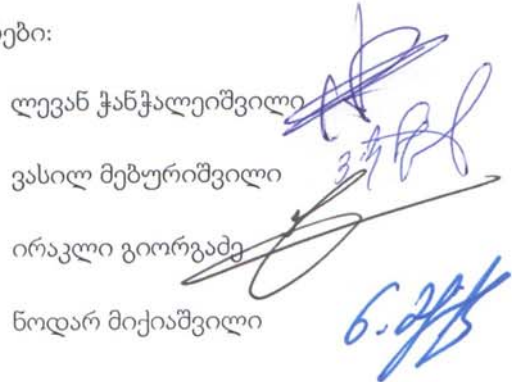 ლევან ჭანჭალეიშვილი
ვასილ მებურიშვილი
ირაკლი გიორგაძე
ნოდარ მიქიაშვილი